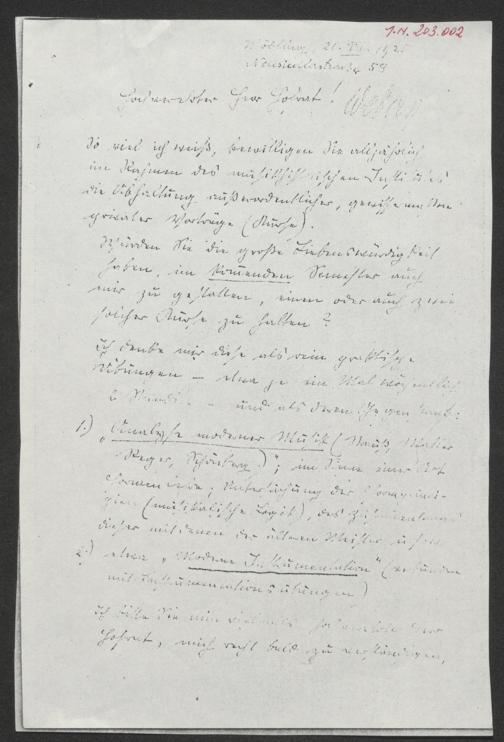 I.N. 203.002
Mödling, 21. VII. 192
Neusiedlerstraße 58
Hochverehrter Herr Hofrat!
So viel ich weiß, bewilligen Sie alljährlich
im Rahmen des musikhistorischen Institutes
die Abhaltung außerordentlicher, gewissermaßen
privater Vorträge (Kurse).
Würden Sie die große Liebenswürdigkeit
haben, im kommenden Semester auch
mir zu gestatten, einen oder auch zwei
solcher Kurse zu halten?
Ich denke mir diese als rein praktische
Übungen – etwa je ein Mal wöchentlich
2 Stunden – und als deren Gegenstand:
1.) „Analyse moderner Musik (Strauß, Mahler
Reger, Schönberg)"; im Sinne einer Art
Formenlehre, Untersuchung der
(musikalische Logik), des Zusammenhanges
dieser mit denen der älteren Meister
2.) etwa „Moderne Instrumentation" (verbunden
mit Instrumentationsübungen)
Ich bitte Sie nun vielmals, hochverehrter Herr
Hofrat, mich recht bald zu verständigen,